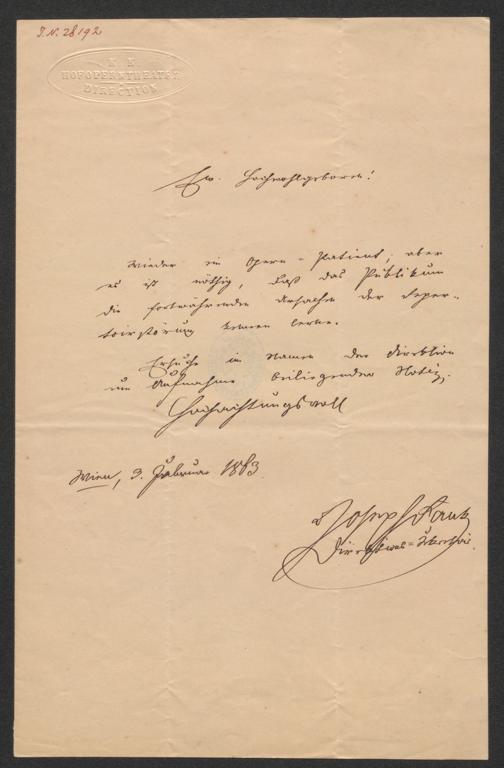 I.N. 28192
K. K.
HOFOPERNTHEATER
DIRECTION
Ew. Hochwohlgeboren!
Wieder ein Opern-Patient; aber
es ist nöthig, daß das Publikum
die fortwährenden Ursachen der Reper-
toirstörung kennen lerne.
Ersuche im Namen der Direktion
um Aufnahme beiliegender Notiz.
Hochachtungsvoll
Wien, 3. Februar 1863.
Joseph Rank
Direktions-Sekretär.